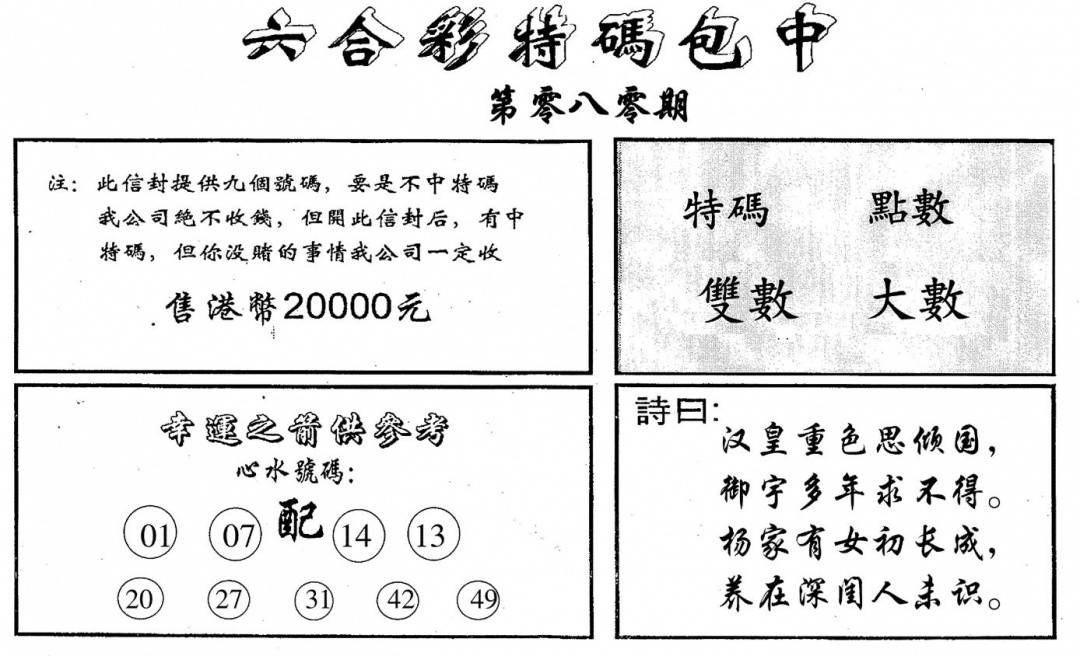 六合彩特碼包中
第零八零期
注：此信封提供九個號碼，要是不中特碼
我公司絕不收錢，但開此信封后，有中
特碼，但你没賭的事情我公司一定收
售港幣20000元
特碼 點數
雙數 大數
幸運之箭供參考
心水號碼：
01 07 配 14 13
20 27 31 42 49
詩曰：
汉皇重色思倾国，
御宇多年求不得。
杨家有女初长成，
养在深闺人未识。